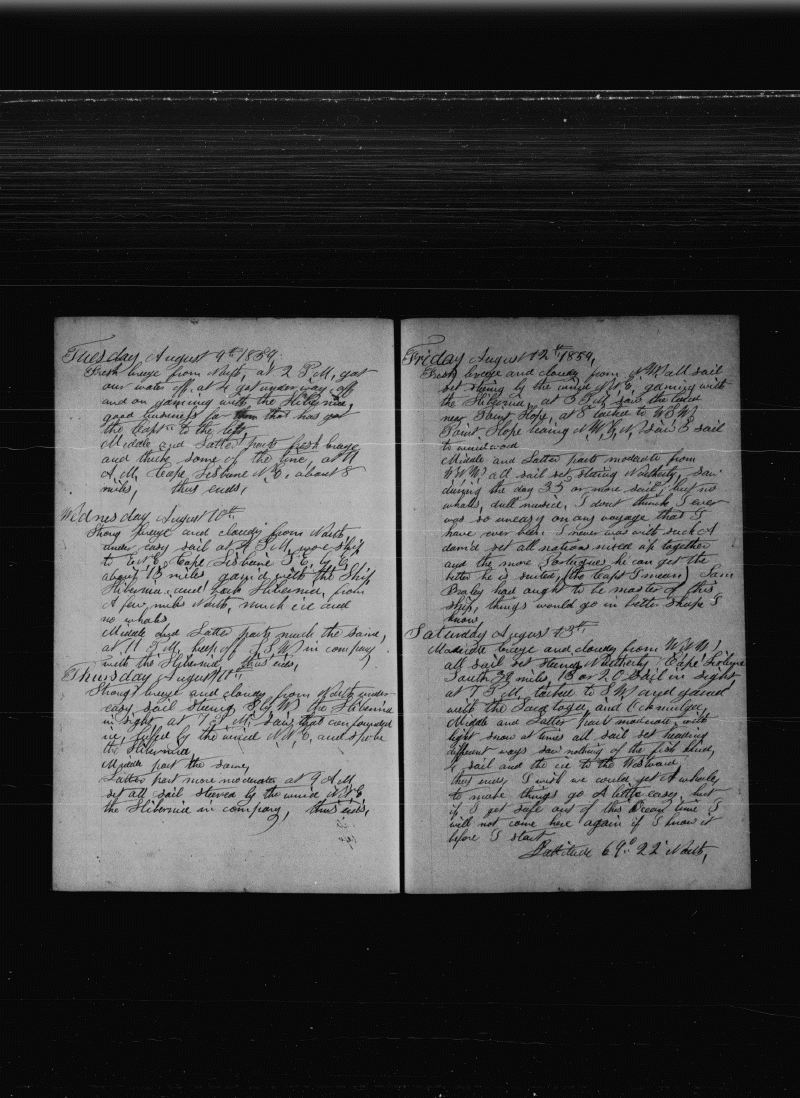 Tuesday August 9th 1859.
Fresh breeze from North, at 2 P.M, got
our water off. at 4 got underway off
and on gamming with the Hibernia,
good business for them that has got
the Capt to the left
Middle and Latter parts fresh breeze
and thick some of the time, at 11
A.M, Cape Lisburne N.E, about 8
miles, thus ends,
Wednesday August 10th
Strong breeze and cloudy from North,
under easy sail at 4 P.M, wore ship
to Cape Lisburne
about 15 miles, gam'd with the Ship
Hibernia, and bark Hibernia, from
A few miles North, much ice and
no whales
Middle and Latter parts much the same,
at 11 P.M, keep off S.W, in company
with the Hibernia, thus ends,
Thursday August 11th
Strong breeze and cloudy from North under
easy sail steering S by W, the Hibernia
in sight, at 7 P.M, saw that
ice, luffed by the wind N.E, and spoke
the Hibernia,
Middle part the same,
Latter part more moderate at 9 A.M,
set all sail steered by the wind
the Hibernia in company, thus ends,
Friday August 12th 1859,
Fresh breeze and cloudy from N.W, all sail
set steering by the wind gaming with
the Hibernia, at 5 P.M, saw the land
near Point Hope, at 8 tacked to W.S.W,
Point Hope bearing saw 8 sail
to windward
Middle and Latter parts moderate from
W.N.W, all sail set steering Northerly, saw
during the day 35 or more sail, but no
whales, dull music, I dont think I ever
was so uneasy on any voyage that I
have ever been. I never was with such A
damid set all nations mixed up together
and the more Portugues he can get the
better he is suited, (the Capt I mean) Sam
Braley had ought to be master of this
ship, things would go in better shape I
know,
Saturday August 13th
Moderate breeze and cloudy from W.N.W,
all sail set steering Northerly, Cape Lisburne
South 38 miles, 15 or 20 sail in sight
at 7 P.M, tacked to S.W, and gamed
with the and Ocmulgee,
Middle and Latter parts moderate, with
light snow at times all sail set heading
different ways saw nothing of the fish kind,
sail and the ice to the Westward,
thus ends, I wish we could get A whale
to make things go A little easy, but
if I get safe out of this Ocean time I
will not come here again if I know it
before I start
Latitude 69° 22' North,